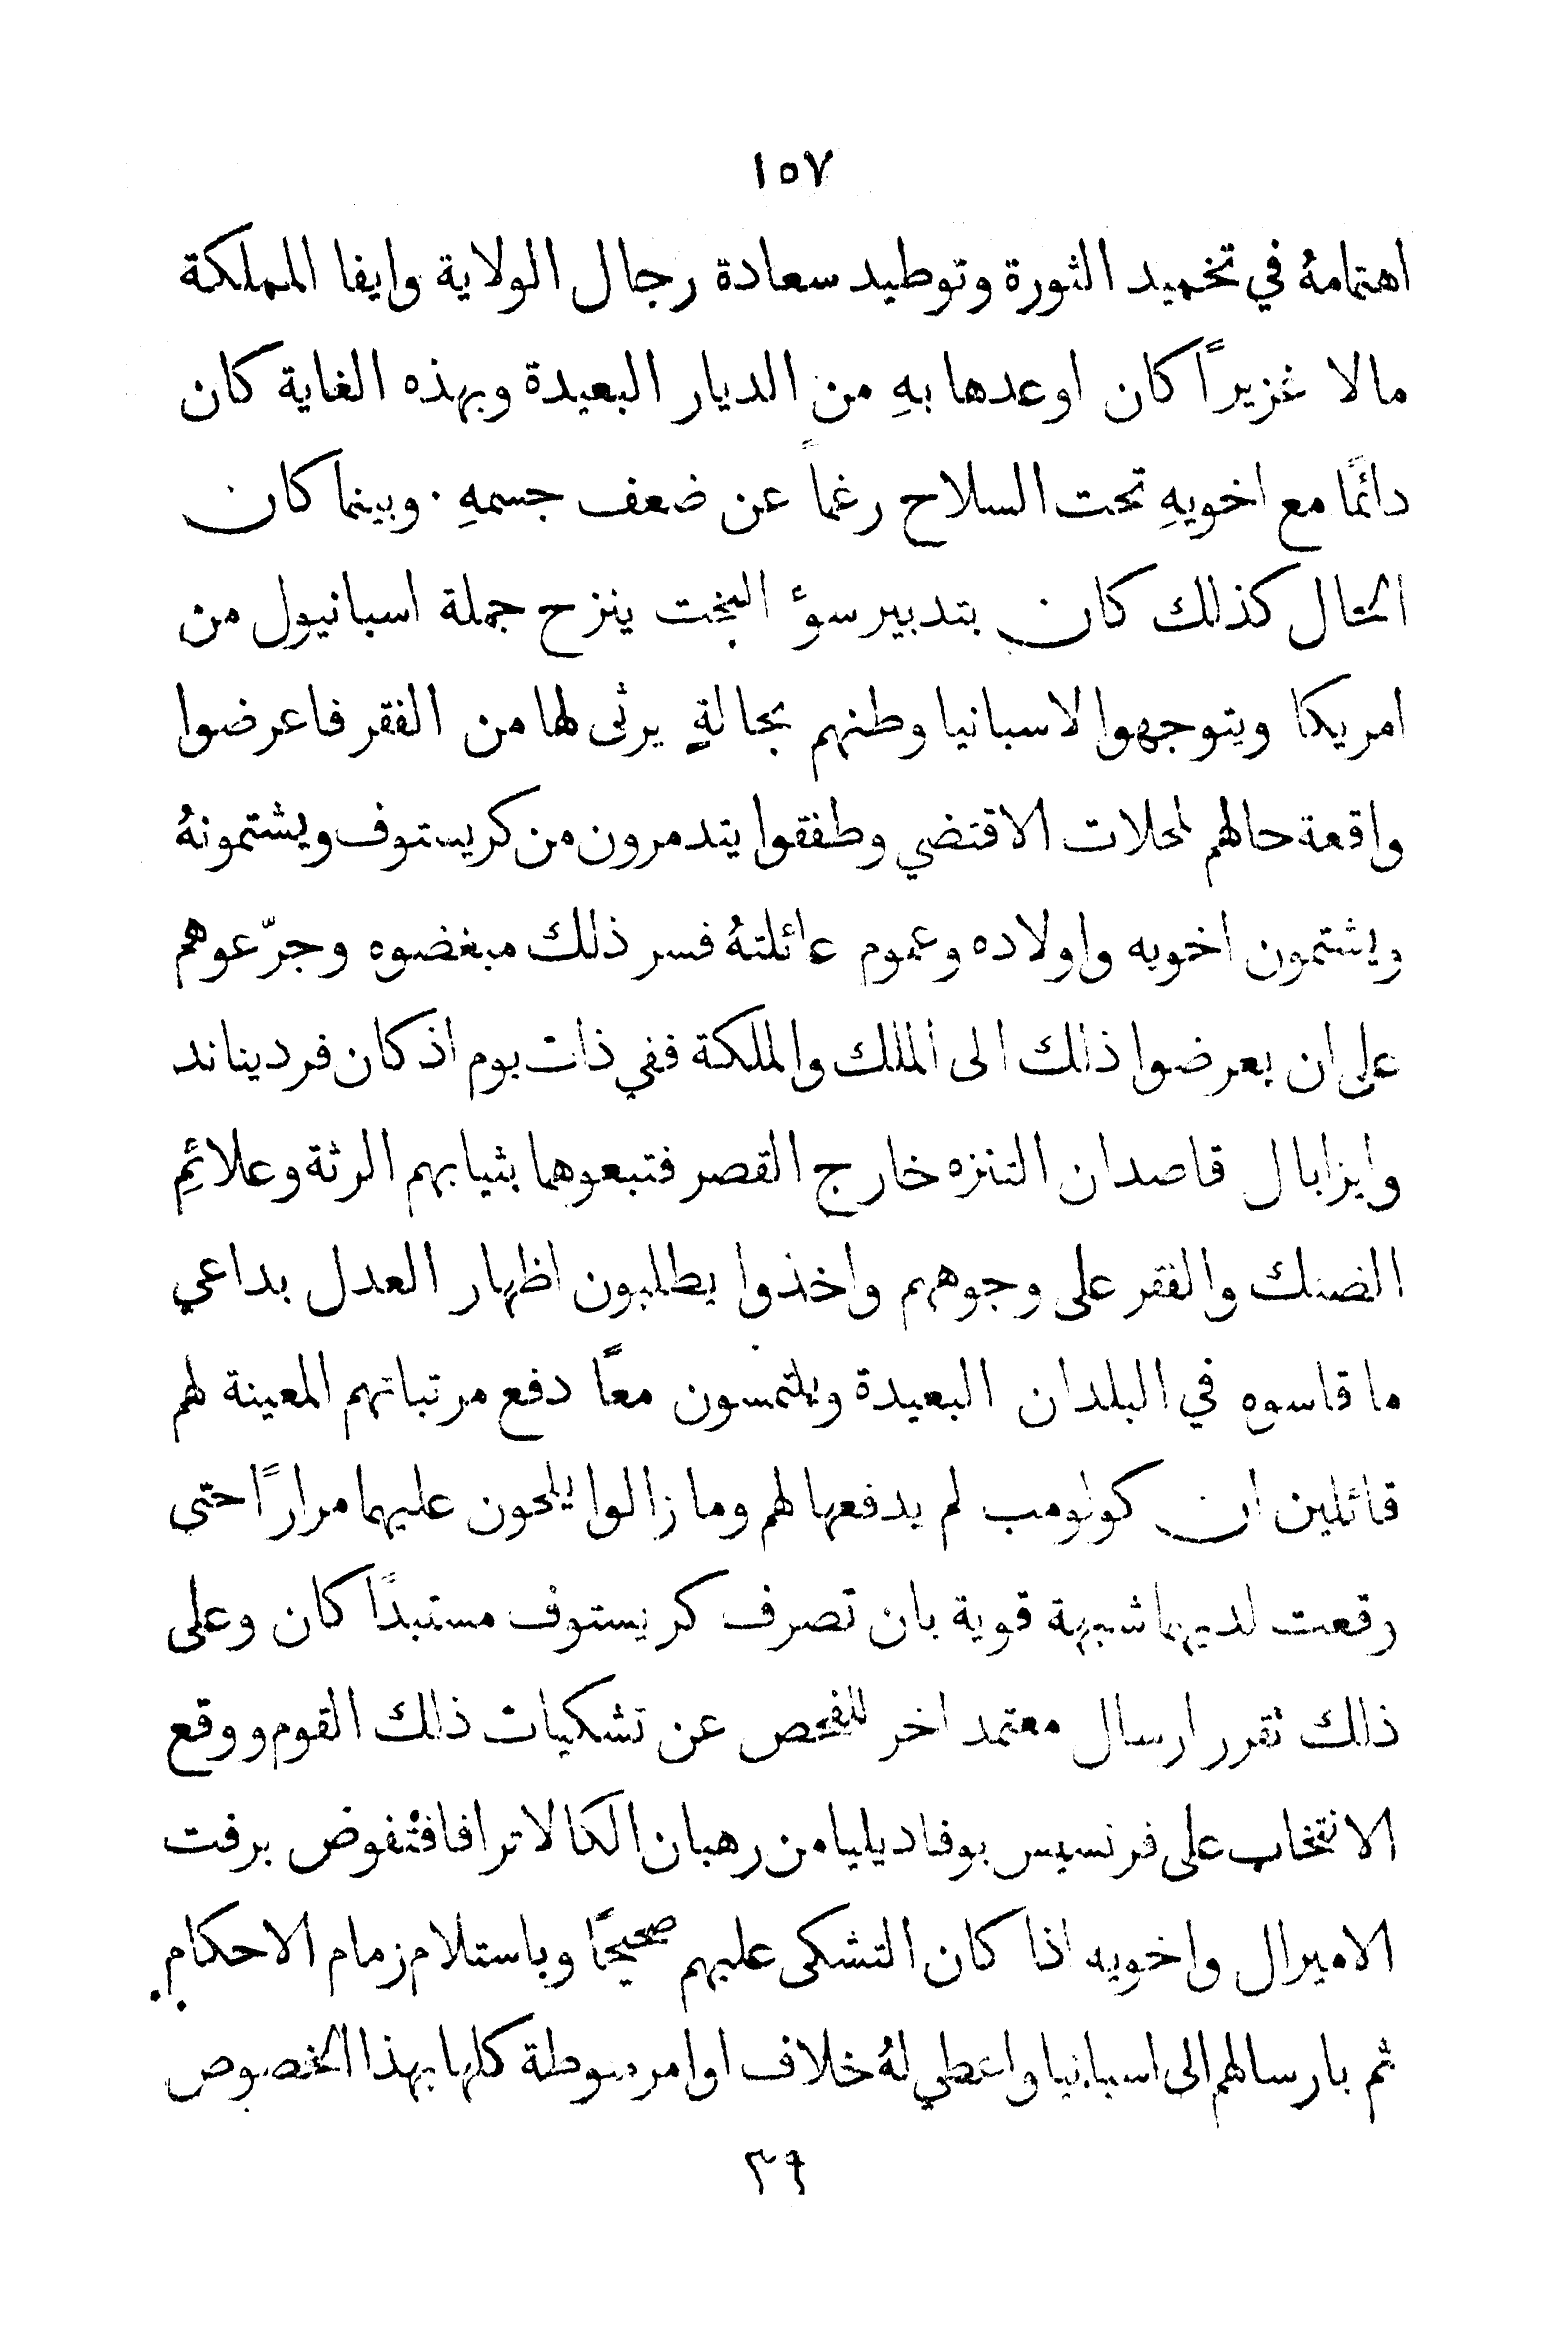 ١٥٧
اهتمامهُ في تخميد الثورة وتوطيد سعادة رجال الولاية وايفا المملكة
مالا غزيراً كان اوعدها بهِ من الديار البعيدة وبهذه الغاية كان
دائمًا مع اخويهِ تحت السلاح رغماً عن ضعف جسمهِ. وبينما كان
الحال كذلك كان بتدبير سوء البخت ينزح جملة اسبانيول من
امريكا ويتوجهوا لاسبانيا وطنهم بحالةٍ يرثى لها من الفقر فاعرضوا
واقعة حالهم لمحلات الاقتضي وطفقوا يتدمرون من كريستوف ويشتمونهُ
ويشتمون اخويه واولاده وعموم عائلتهُ فسر ذلك مبغضوه وجرّعوهم
على ان يعرضوا ذلك الى الملك والملكة ففي ذات يوم اذ كان فرديناند
وايزابال قاصدان التنزه خارج القصر فتبعوهما بثيابهم الرثة وعلائمِ
الضنك والفقر على وجوههم واخذوا يطلبون اظهار العدل بداعي
ما قاسوه في البلدان البعيدة ويلتمسون معاً دفع مرتباتهم المعينة لهم
قائلين ان كولومب لم يدفعها لهم وما زالوا يلحون عليهما مراراً حتى
رقعت لديهما شبهة قوية بان تصرف كريستوف مستبدًا كان وعلى
ذلك تقرر ارسال معتمد اخر للفحص عن تشكيات ذلك القوم ووقع
الانتخاب على فرنسيس بوفاديليا من رهبان الكالاترافا فتفوض برفت
الاميرال واخويه اذا كان التشكى عليهم صحيحًا وباستلام زمام الاحكام.
ثم بارسالهم الى اسبانيا واعطي لهُ خلاف اوامر موطة كلها بهذا الخصوص
٣٩